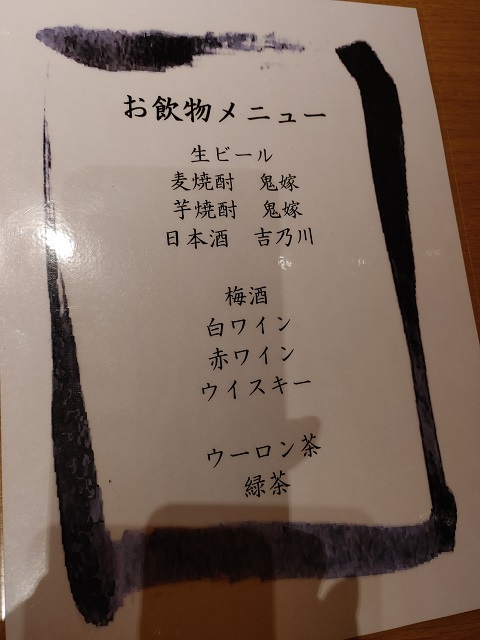 お飲物メニュー
生ビール
麦焼酎　鬼嫁
芋焼酎　鬼嫁
日本酒　吉乃川
梅酒
白ワイン
赤ワイン
ウイスキー
ウーロン茶
緑茶